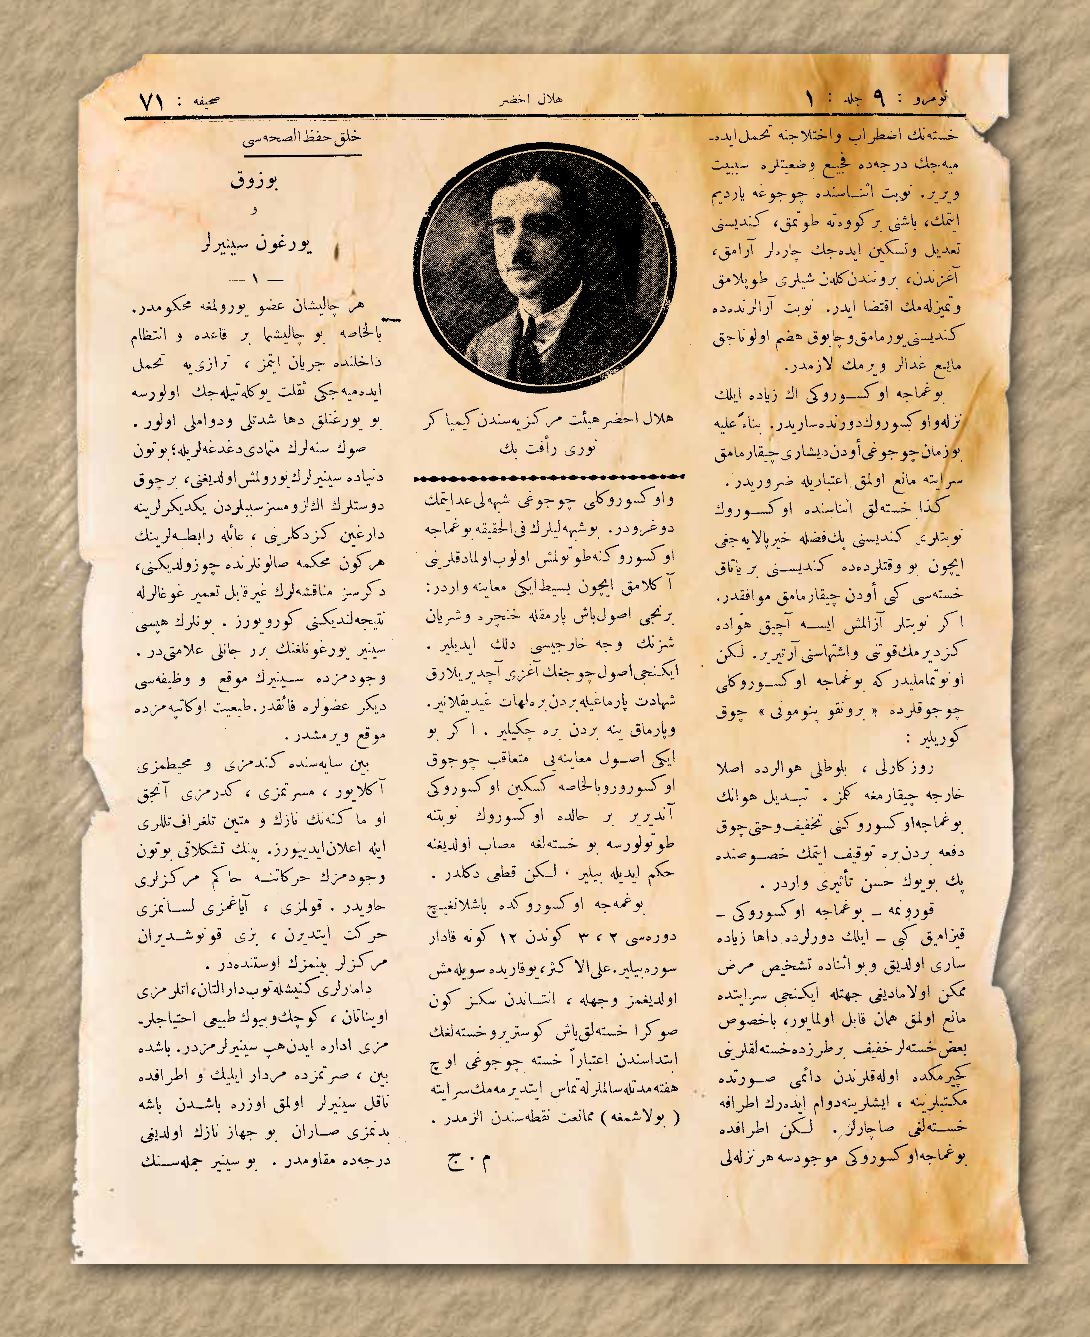 نومرو : ٩ جلد : ١
هلال اخضر
صحيفه : ٧١
خسته‌نك اضطراب و اختلاجنه تحمل ايده‌-
ميه‌جك درجه‌ده فجيع وضعيتلره سببيت
ويرير. نوبت اثناسنده چوجوغه يارديم
ايتمك، باشنى بر كووده‌ته طوتمق، كنديسنى
تعديل وتسكين ايده‌جك چاره‌لر آرامق،
آغزندن، برونندن كلن شيلرى طوپلامق
وتميزله‌مك اقتضا ايدر. نوبت آرالرنده‌ده
كنديسنى يورمامق وچابوق هضم اولوناجق
مايع غدالر ويرمك لازمدر.
بوغماجه اوكسوروكى اك زياده ايلك
نزله‌و اوكسوروك دورنده ساريدر. بناءً عليه
بوزمان چوجوغى أودن ديشارى چيقارمامق
سرايته مانع اولمق اعتباريله ضروريدر.
كذا خسته‌لق اثناسنده اوكسوروك
نوبتلرى كنديسنى پك فضله خيرپالايه‌جغى
ايچون بو وقتلرده‌ده كنديسنى بر ياتاق
خسته‌سى كبى أودن چيقارمامق موافقدر.
اكر نوبتلر آزالمش ايسه آچيق هواده
كزديرمك قوتنى واشتهاسنى آرتيرير. لكن
اونوتماملیدركه بوغماجه اوكسوروكلى
چوجوقلرده « برونقو پنومونى » چوق
كوريلير :
روزكارلى ، بلوطلى هوالرده اصلا
خارجه چيقارمغه كلمز. تبديل هوانك
بوغماجه‌اوكسوروكنى تخفيف وحتى چوق
دفعه بردن بره توقيف ايتمك خصوصنده
پك بويوك حسن تأثيرى واردر.
قورونمه ـ بوغماجه اوكسوروكى ـ
قيزاميق كبى ـ ايلك دورلرده داها زياده
سارى اولديغى و بو اثناده تشخيص مرض
ممكن اولاماديغى جهتله ايكنجى سرايتده
مانع اولمق همان قابل اولمايور، باخصوص
بعض خسته‌لر خفيف برطرزده خسته‌لقلرينى
كچيرمكده اوله‌قلرندن دائمى صورتده
مكتبلرينه ، ايشلرينه دوام ايده‌رك اطرافه
خسته‌لغى صاچارلر. لكن اطرافده
بوغماجه‌اوكسوروكى موجودسه هر نزله‌لى
هلال احضر هيئت مركزيه‌سندن كيمياكر
نورى رأفت بك
واوكسوروكلى چوجوغى شبهه‌لى عدايتمك
دوغرودر. بوشبهه‌ليلرك فى‌الحقيقه بوغماجه
اوكسوروكنه‌ طوتولمش اولوب اولمادقلرينى
آكلامق ايچون بسيط ايكى معاينه واردر:
برنجى اصول باش پارمقله خنجره وشريان
شزنك وجه خارجيسى دلك ايديلير .
ايكنجى اصول چوجغك آغزى آچديريلارق
شهادت پارماغيله بردن بره لهات غيديقلانير.
وپارماق ينه بردن بره چكيلير . اكر بو
ايكى اصول معاينه‌يى متعاقب چوجوق
اوكسورور وبالخاصه كسكين اوكسوروكى
آنديرير بر حالده اوكسوروك نوبتنه
طوتولورسه بو خسته‌لغه مصاب اولديغنه
حكم ايديله بيلير . لكن قطعى دكلدر .
بوغمه‌جه اوكسوروكده باشلانغيچ
دوره‌سى ٢ ، ٣ كوندن ١٢ كونه قادار
سوره‌بيلير. على‌الاكثر، يوقاريده سويله‌مش
اولديغمز وجهله ، انتاندن سكز كون
صوكرا خسته‌لق باش كوستريرو خسته‌لغك
ابتداسندن اعتباراً خسته چوجوغى اوچ
هفته مدتله سالملرله تماس ايتديرمه‌مك سرايته
( بولاشمغه ) ممانعت نقطه‌سندن الزمدر .
م . ج
خلق حفظ الصحه‌سى
بوزوق
و
يورغون سينيرلر
— ١ —
هر چاليشان عضو يورولمغه محكومدر.
بالخاصه بو چاليشما بر قاعده و انتظام
داخلنده جريان ايتمز ، ترازى‌يه تحمل
ايده‌ميه‌جكى ثقلت يوكله‌تيله‌جك اولورسه
بو يورغنلق دها شدتلى ودواملى اولور .
صوك سنه‌لرك متمادى دغدغه‌لريله؛ بوتون
دنياده سينيرلرك يورولمش اولديغنى، برچوق
دوستلرك اك لزومسز سببلردن يكديكرلرينه
دارغين كزدكلرينى ، عائله رابطه‌لرينك
هركون محكمه صالونلرنده چوزولديكنى،
دكرسز مناقشه‌لرك غيرقابل تعمير غوغالرله
نتيجه‌لنديكنى كورويورز . بونلرك هپسى
سينير يورغونلغنك برر جانلى علامتى‌در .
وجودمزده سينيرك موقع و وظيفه‌سى
ديكر عضولره فائقدر. طبيعت اوكا تپه‌مزده
موقع ويرمشدر .
بين سايه‌سنده كندمزى و محيطمزى
آكلايور ، مسرتمزى ، كدرمزى آنجق
او ماكنه‌نك نازك و متين تلغراف تللرى
ايله اعلان ايدييورز. بينك تشكلاتى بوتون
وجودمزك حركاتنه حاكم مركزلرى
حاويدر . قولمزى ، آياغمزى لسانمزى
حركت ايتديرن ، بزى قونوشديران
مركزلر بينمزك اوستنده‌در .
دامارلرى كنيشله‌توب دارالتان، اتلرمزى
اويناتان ، كوچك وبيوك طبيعى احتياجلر-
مزى اداره ايدن هپ سينيرلرمزدر. باشده
بين ، صرتمزده مردار ايليك و اطرافده
ناقل سينيرلر اولمق اوزره باشدن باشه
بدنمزى صاران بو جهاز نازك اولديغى
درجه‌ده مقاومدر . بو سينير جمله‌سنك